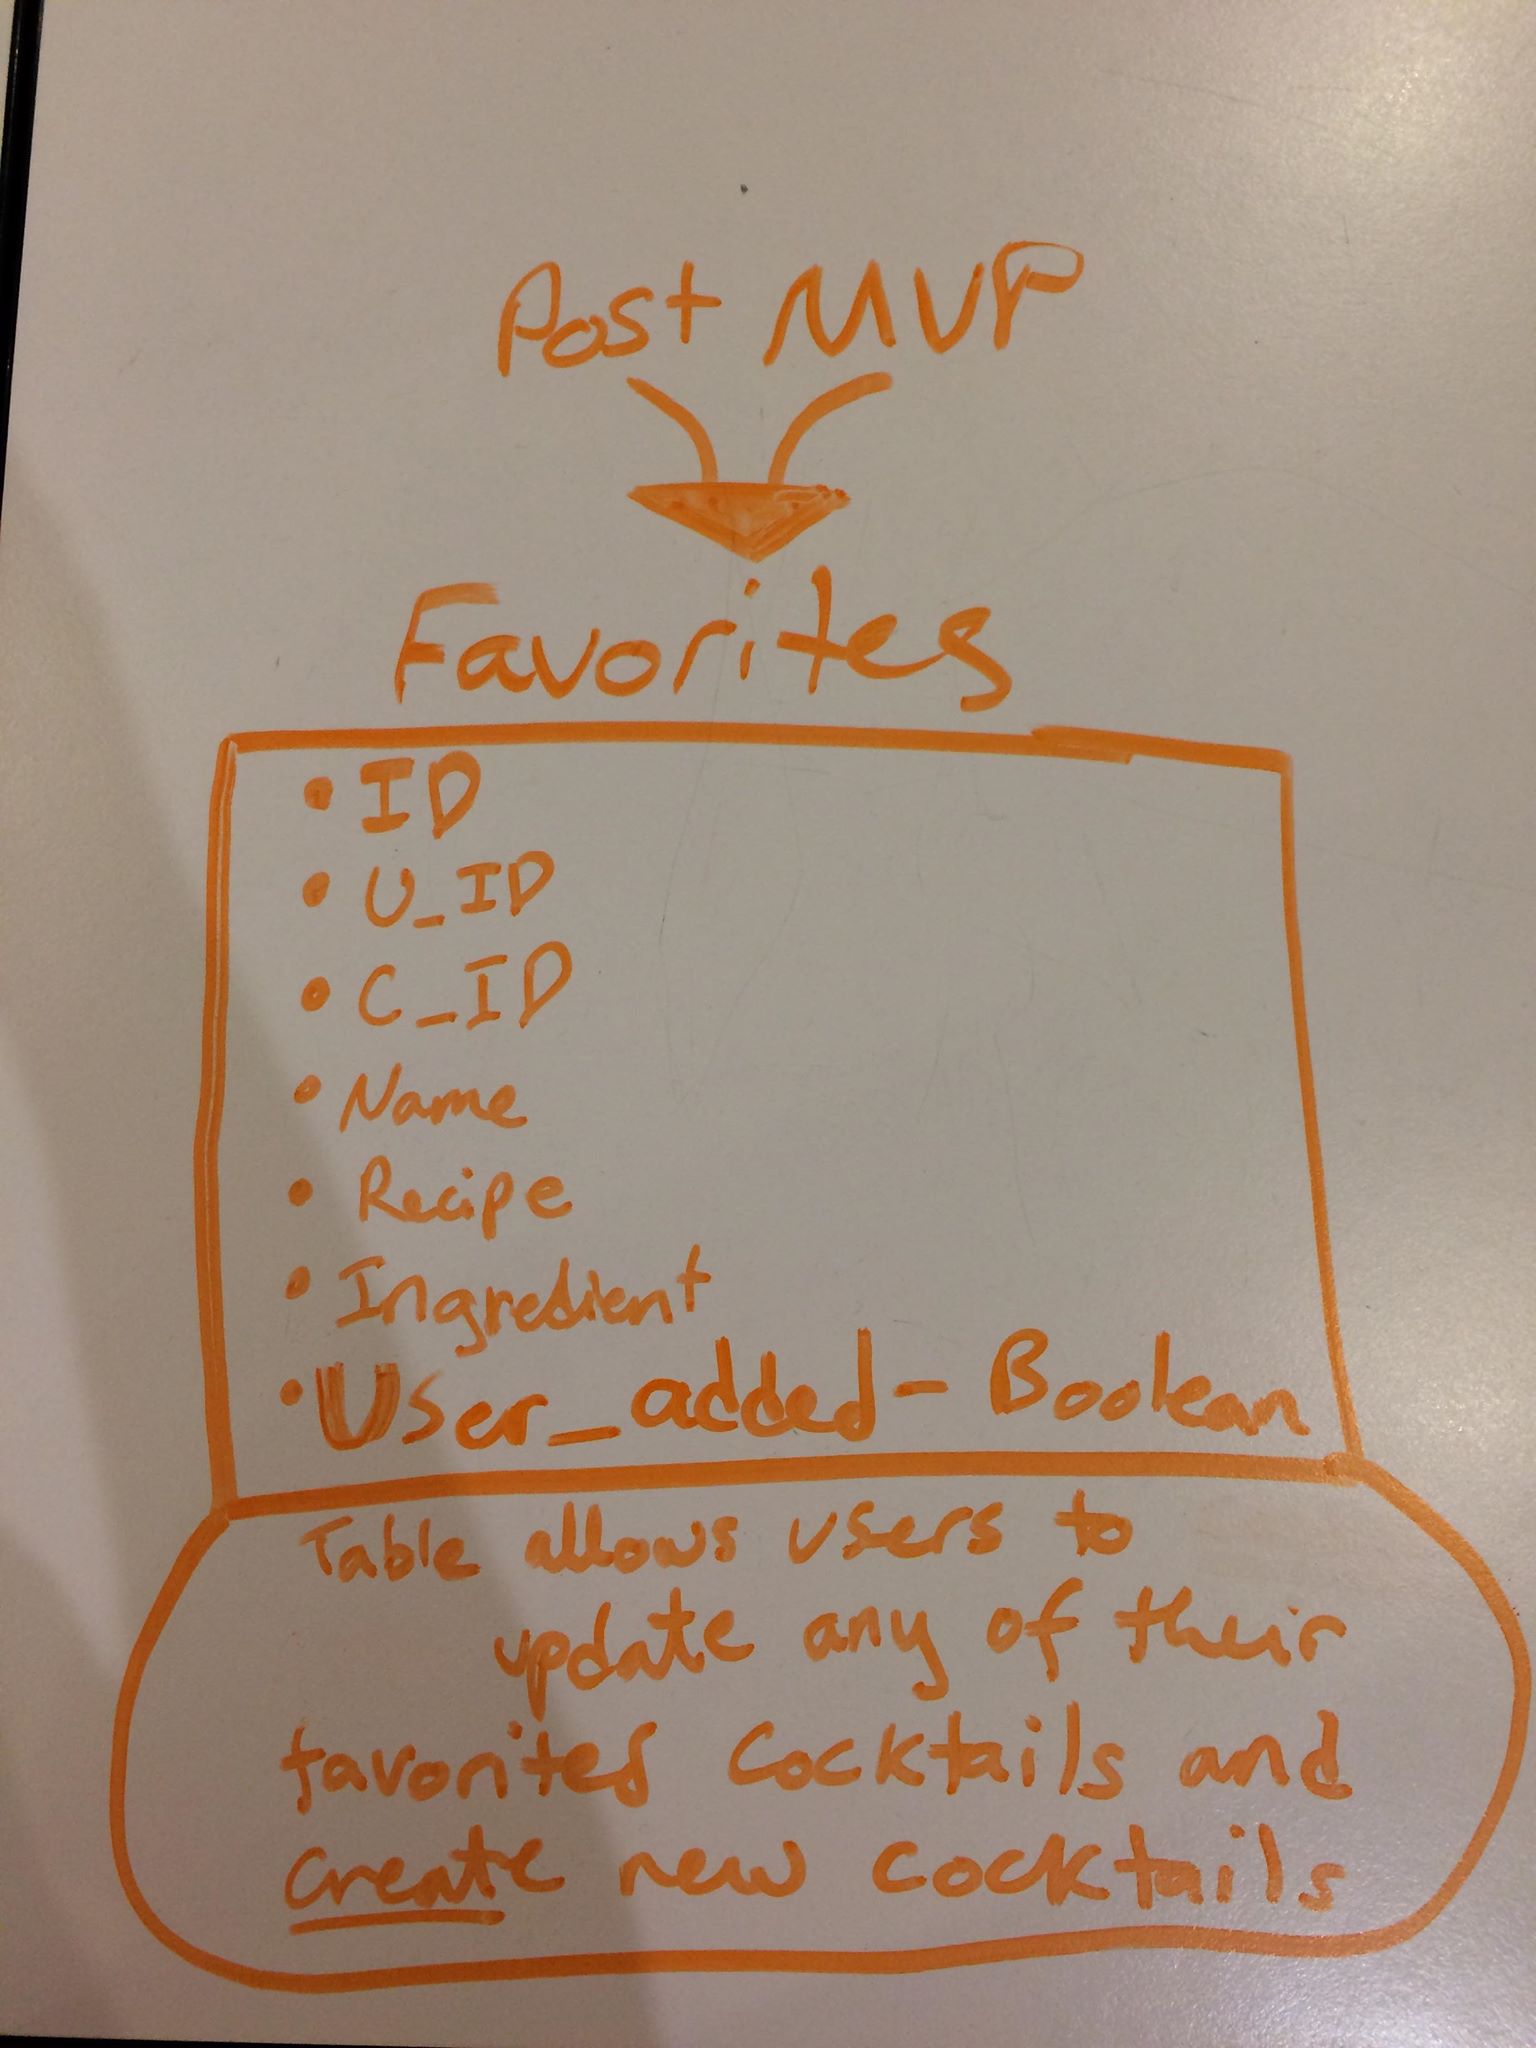 Post MVP
Favorites
• ID
• U_ID
• C_ID
• Name
• Recipe
• Ingredient
• User_added - Boolean
Table allows users to
update any of their
favorited cocktails and
create new cocktails